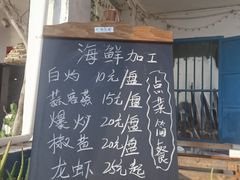 海鲜加工
白灼 10元/鱼
蒜容蒸 15元/鱼
爆炒 20元/鱼
椒盐 20元/鱼
龙虾 25元起
点菜简餐